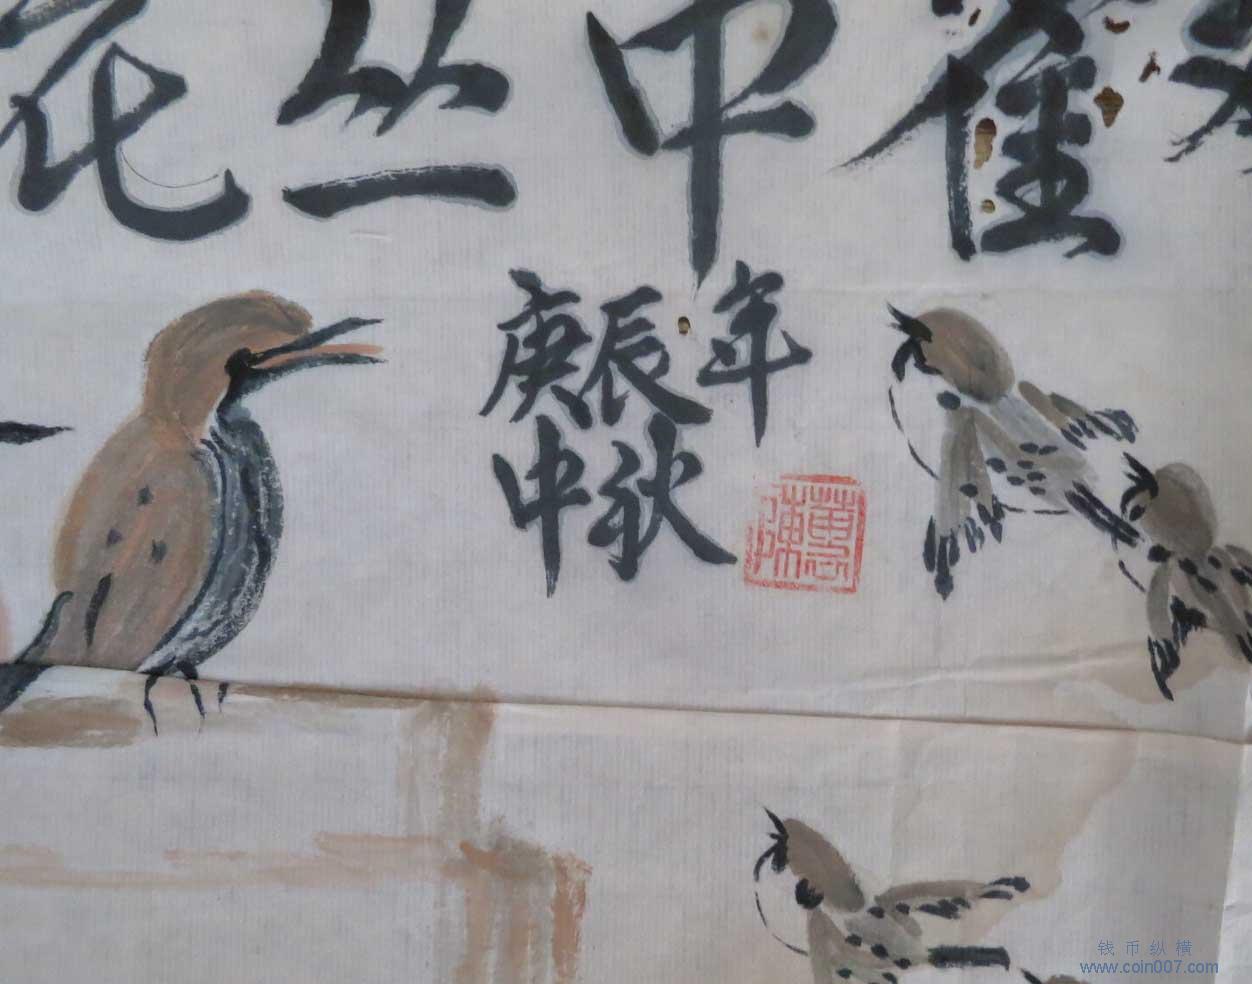 花丛中雀
庚辰年
中秋
钱币纵横
www.coin007.com